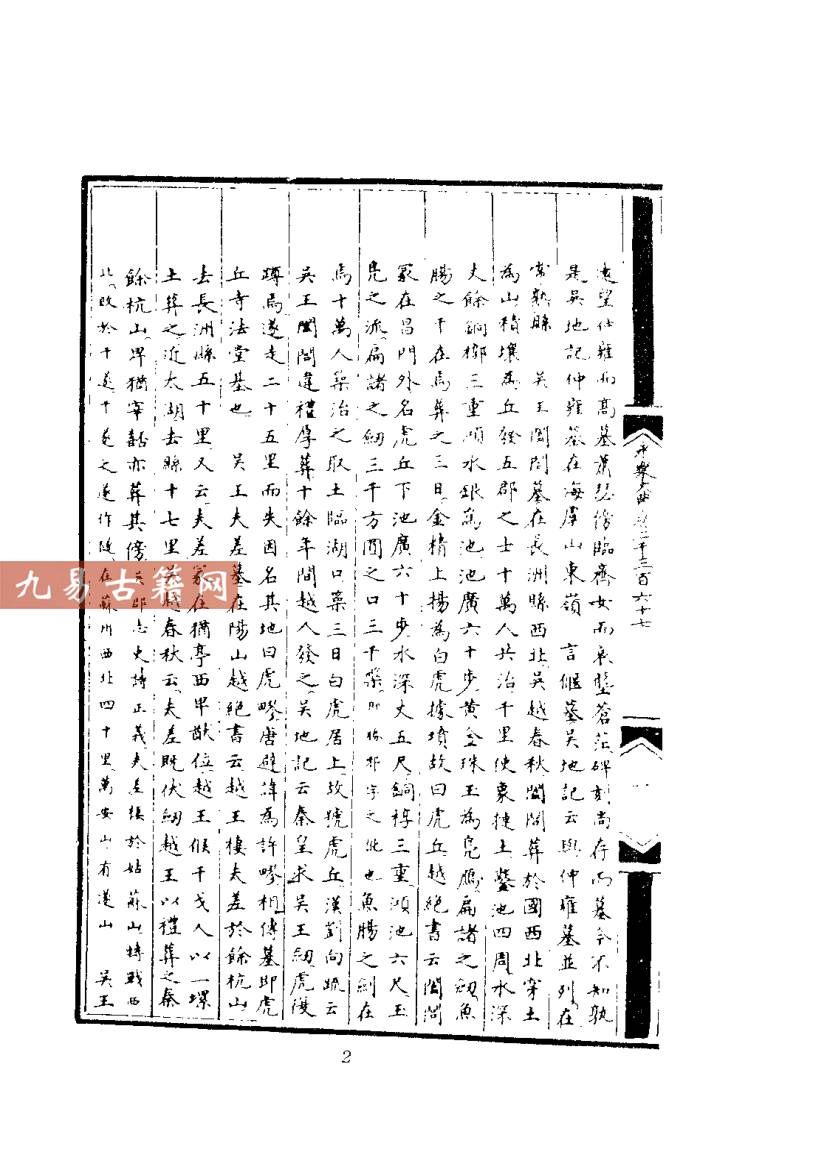 遠望仕雍而高墓蕭瑟傍臨齊女而哀壑蒼茫碑刻尚存而墓今不知孰
是吳地記仲雍墓在海虞山東嶺　言偃墓吳地記云與仲雍墓並列在
常熟縣　吳王闔閭墓在長洲縣西北吳越春秋闔閭葬於國西北穿土
為山積壤為丘發五郡之士十萬人共治千里使象揵土鑿池四周水深
丈餘銅槨三重澒水銀為池池廣六十步黃金珠玉為鳧鴈扁諸之劒魚
腸之干在焉葬之三日金精上揚為白虎據墳故曰虎丘越絕書云闔閭
冢在昌門外名虎丘下池廣六十步水深丈五尺銅椁三重澒池六尺玉
鳧之流扁諸之劒三千方圓之口三千槃即柃郢字之訛也魚腸之劍在
焉十萬人築治之取土臨湖口築三日白虎居上故號虎丘漢劉向疏云
吳王闔閭違禮厚葬十餘年間越人發之吳地記云秦皇求吳王劒虎復
蹲焉遂走二十五里而失因名其地曰虎疁唐避諱為許疁相傳墓即虎
丘寺法堂墓也　吳王夫差墓在陽山越絕書云越王棲夫差於餘杭山
去長洲縣五十里又云夫差冢在猶亭西卑猷位越王候干戈人以一㙼
土葬之近太湖去縣十七里吳越春秋云夫差既伏劒越王以禮葬之秦
餘杭山卑猶宰嚭亦葬其傍吳郡志史詩正義夫差棲於姑蘇山轉戰西
北敗於干遂干遂之遂作隧在蘇州西北四十里萬安山有遂山　吳王
永樂大典卷二千三百六十七
九易古籍网
2